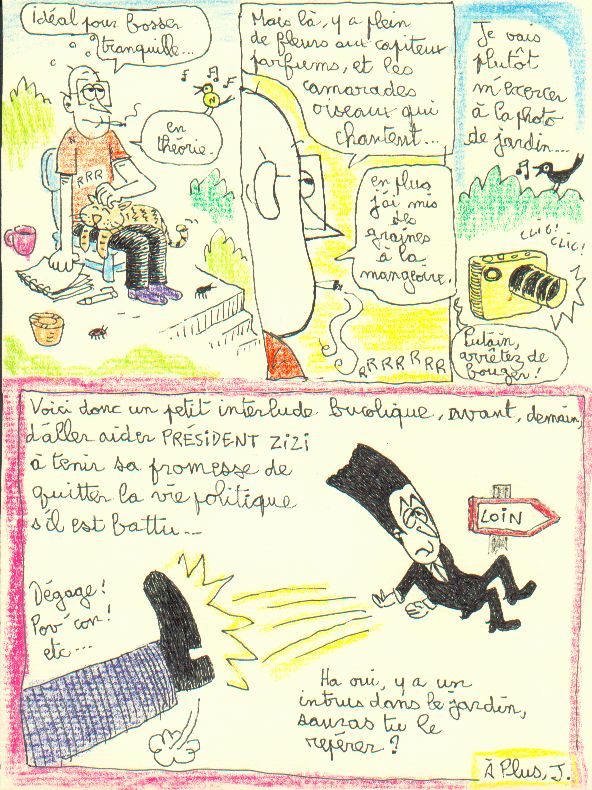 idéal pour bosser
tranquille...
en
théorie.
N
RRR
Mais là, y a plein
de fleurs aux capiteux
parfums, et les
camarades
oiseaux qui
chantent...
en plus,
j'ai mis
des
graines
à la
mangeoire.
RRRRRRR
Je vais
plutôt
m'exercer
à la photo
de jardin...
clic! clic!
Putain,
arrêtez de
bouger!
Voici donc un petit interlude bucolique, avant, demain,
d'aller aider PRÉSIDENT ZIZI
à tenir sa promesse de
quitter la vie politique
s'il est battu...
LOIN
Dégage!
Pov' con!
etc...
Ha oui, y a un
intrus dans le jardin,
sauras tu le
repérer?
À Plus, J.